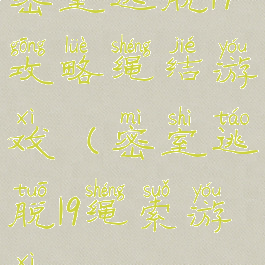 密室逃脱19
gōng lüè shéng jié yóu
攻略绳结游
xì mì shì táo
戏(密室逃
tuō shéng suǒ yóu
脱19绳索游
xì